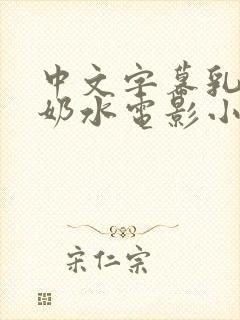 中文字幕乳
奶水电影小
宋仁宗